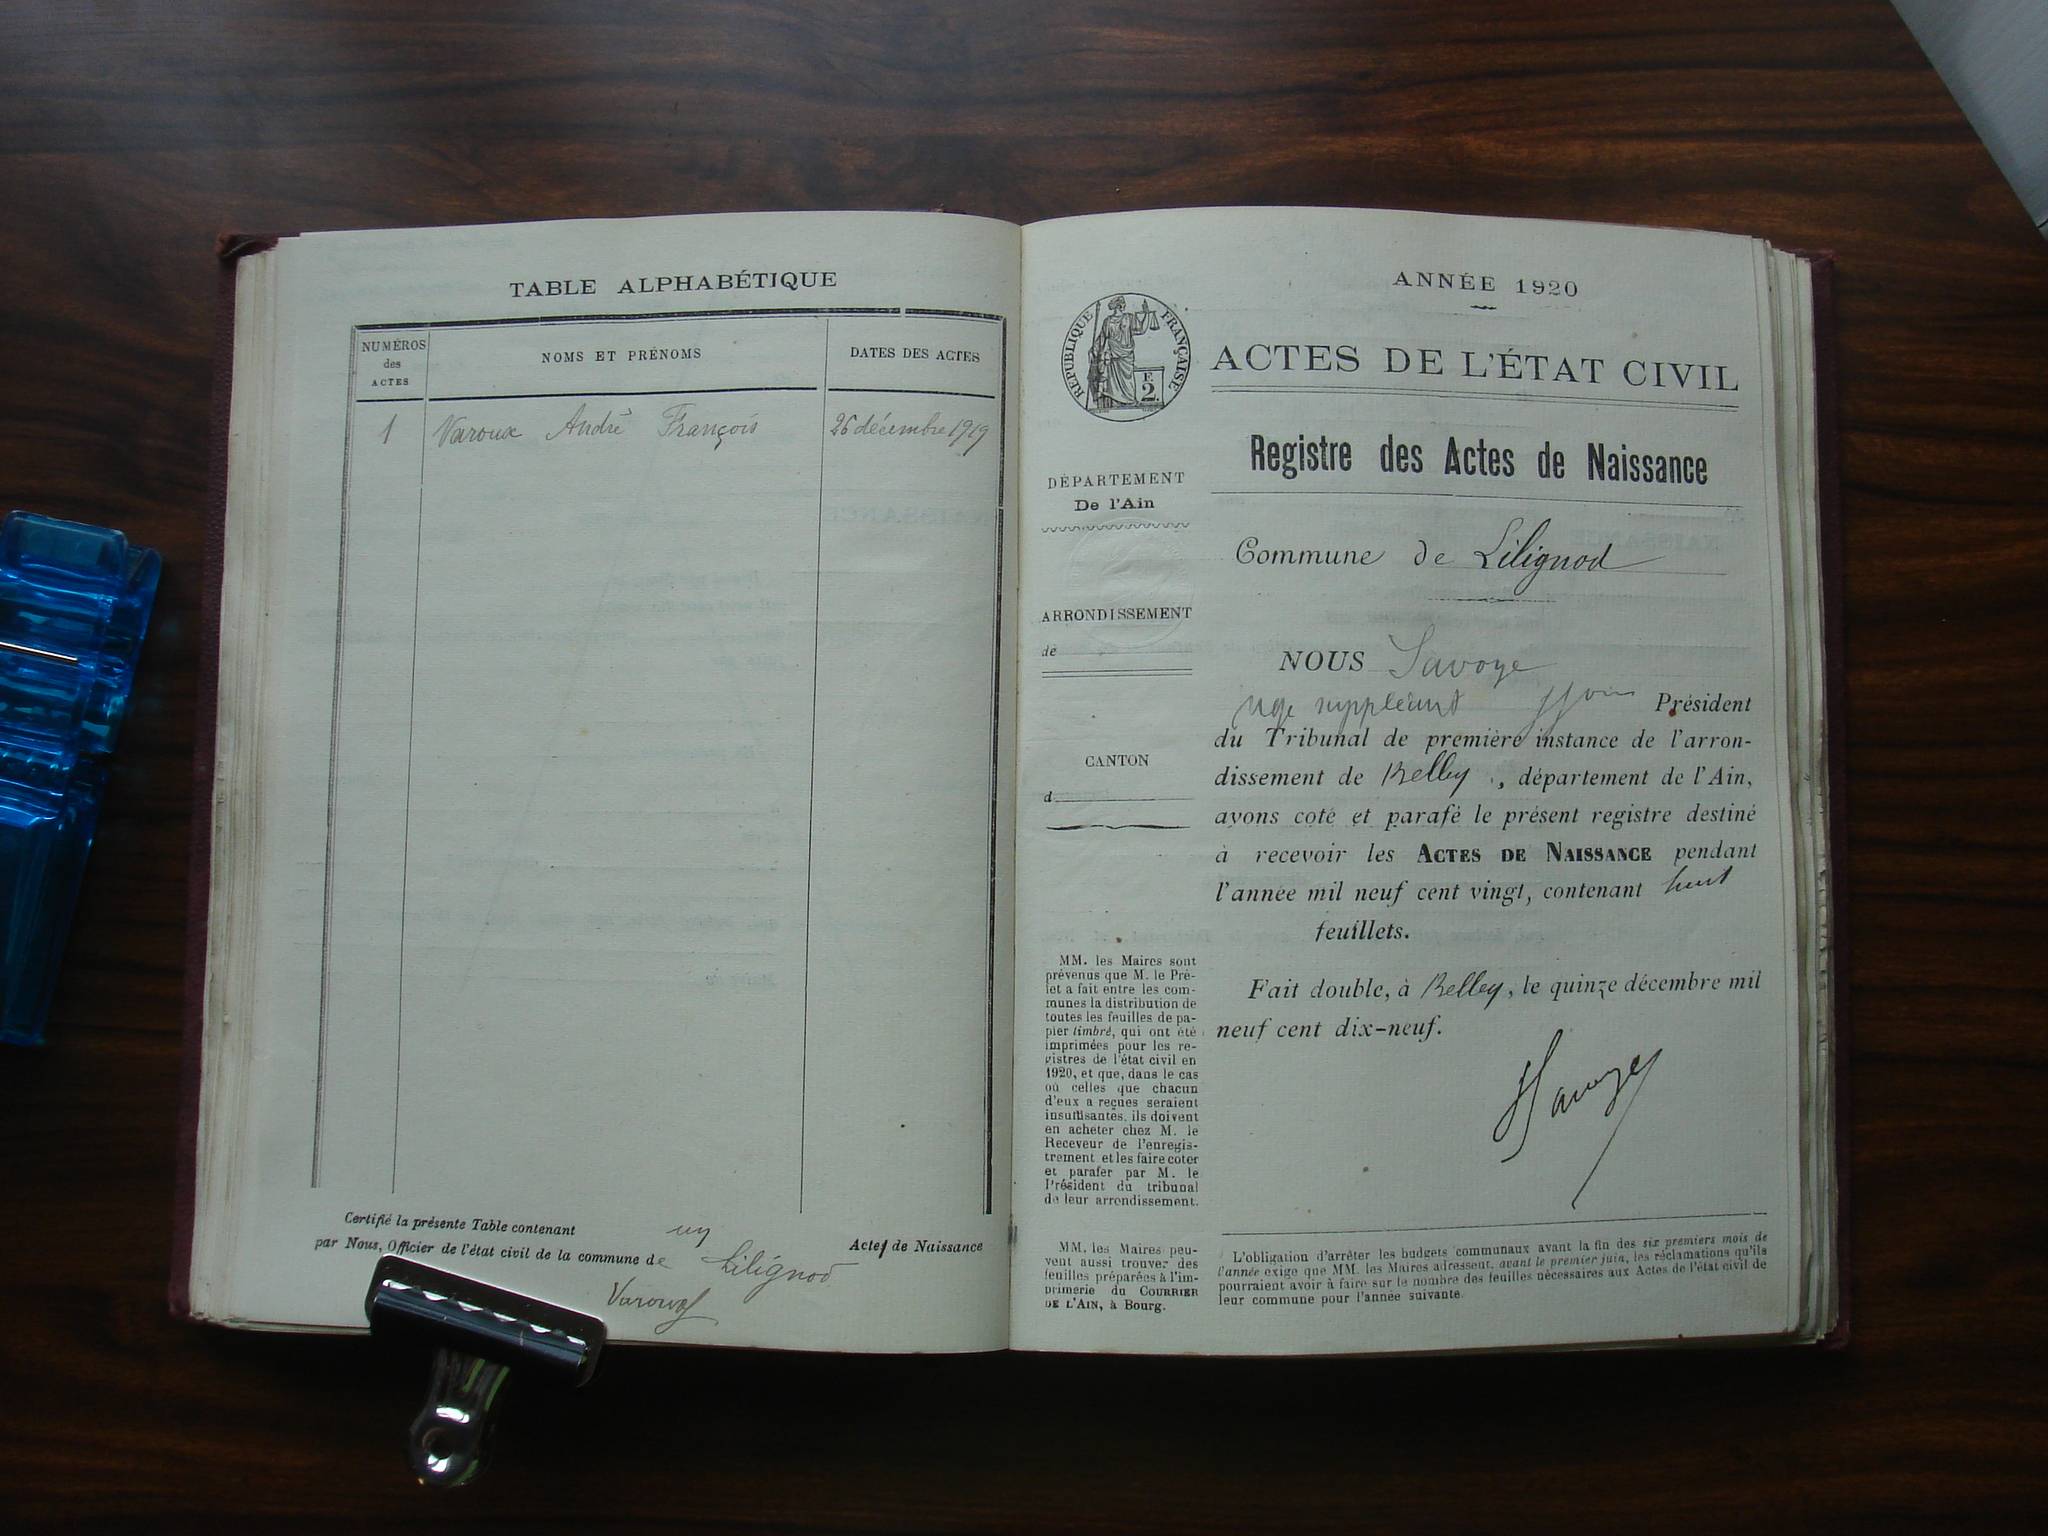 TABLE ALPHABÉTIQUE
NUMÉROS des ACTES
NOMS ET PRÉNOMS
DATES DES ACTES
1 Varoux André François 26 décembre 1919
Certifié la présente Table contenant un Actes de Naissance
par Nous, Officier de l'état civil de la commune de Lilignod
ANNÉE 1920
RÉPUBLIQUE FRANÇAISE
E
2
ACTES DE L'ÉTAT CIVIL
Registre des Actes de Naissance
DÉPARTEMENT
De l'Ain
Commune de Lilignod
ARRONDISSEMENT
de
CANTON
d
NOUS Savoye
juge suppléant Président
du Tribunal de première instance de l'arron-
dissement de Belley, département de l'Ain,
avons coté et parafé le présent registre destiné
à recevoir les ACTES DE NAISSANCE pendant
l'année mil neuf cent vingt, contenant huit
feuillets.
Fait double, à Belley, le quinze décembre mil
neuf cent dix-neuf.
Savoye
MM. les Maires sont
prévenus que M. le Pré-
fet a fait entre les com-
munes la distribution de
toutes les feuilles de pa-
pier timbré, qui ont été
imprimées pour les re-
gistres de l'état civil en
1920, et que, dans le cas
où celles que chacun
d'eux a reçues seraient
insuffisantes, ils doivent
en acheter chez M. le
Receveur de l'enregis-
trement et les faire coter
et parafer par M. le
Président du tribunal
de leur arrondissement.
MM. les Maires peu-
vent aussi trouver des
feuilles préparées à l'im-
primerie du COURRIER
DE L'AIN, à Bourg.
L'obligation d'arrêter les budgets communaux avant la fin des six premiers mois de
l'année exige que MM. les Maires adressent, avant le premier juin, les réclamations qu'ils
pourraient avoir à faire sur le nombre des feuilles nécessaires aux Actes de l'état civil de
leur commune pour l'année suivante.